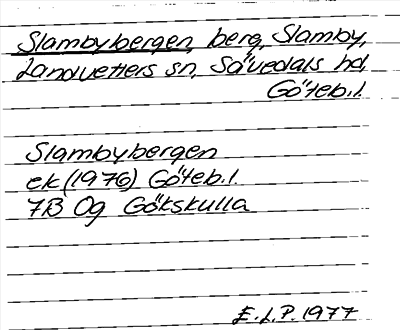 Slambybergen, berg, Slamby,
Landvetters sn, Sävedals hd,
Göteb.l.
Slambybergen
ek (1976) Göteb.l.
7B 0g Gökskulla
E.L.P. 1977